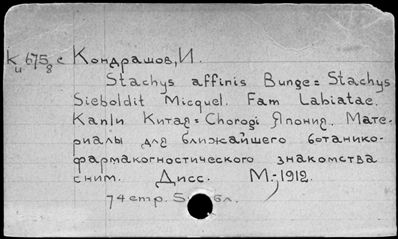 Ku 675/8 с Кондрашов, И.
Stachys affinis Bunge = Stachys
Sieboldit Micquel. Fam Labiatae.
Kanlи Китая = Chorogi Япония. Мате-
риалы для ближайшего ботанико-
фармакогностического знакомства
с ним. Дисс. М.-,1912.
74 стр. бл.